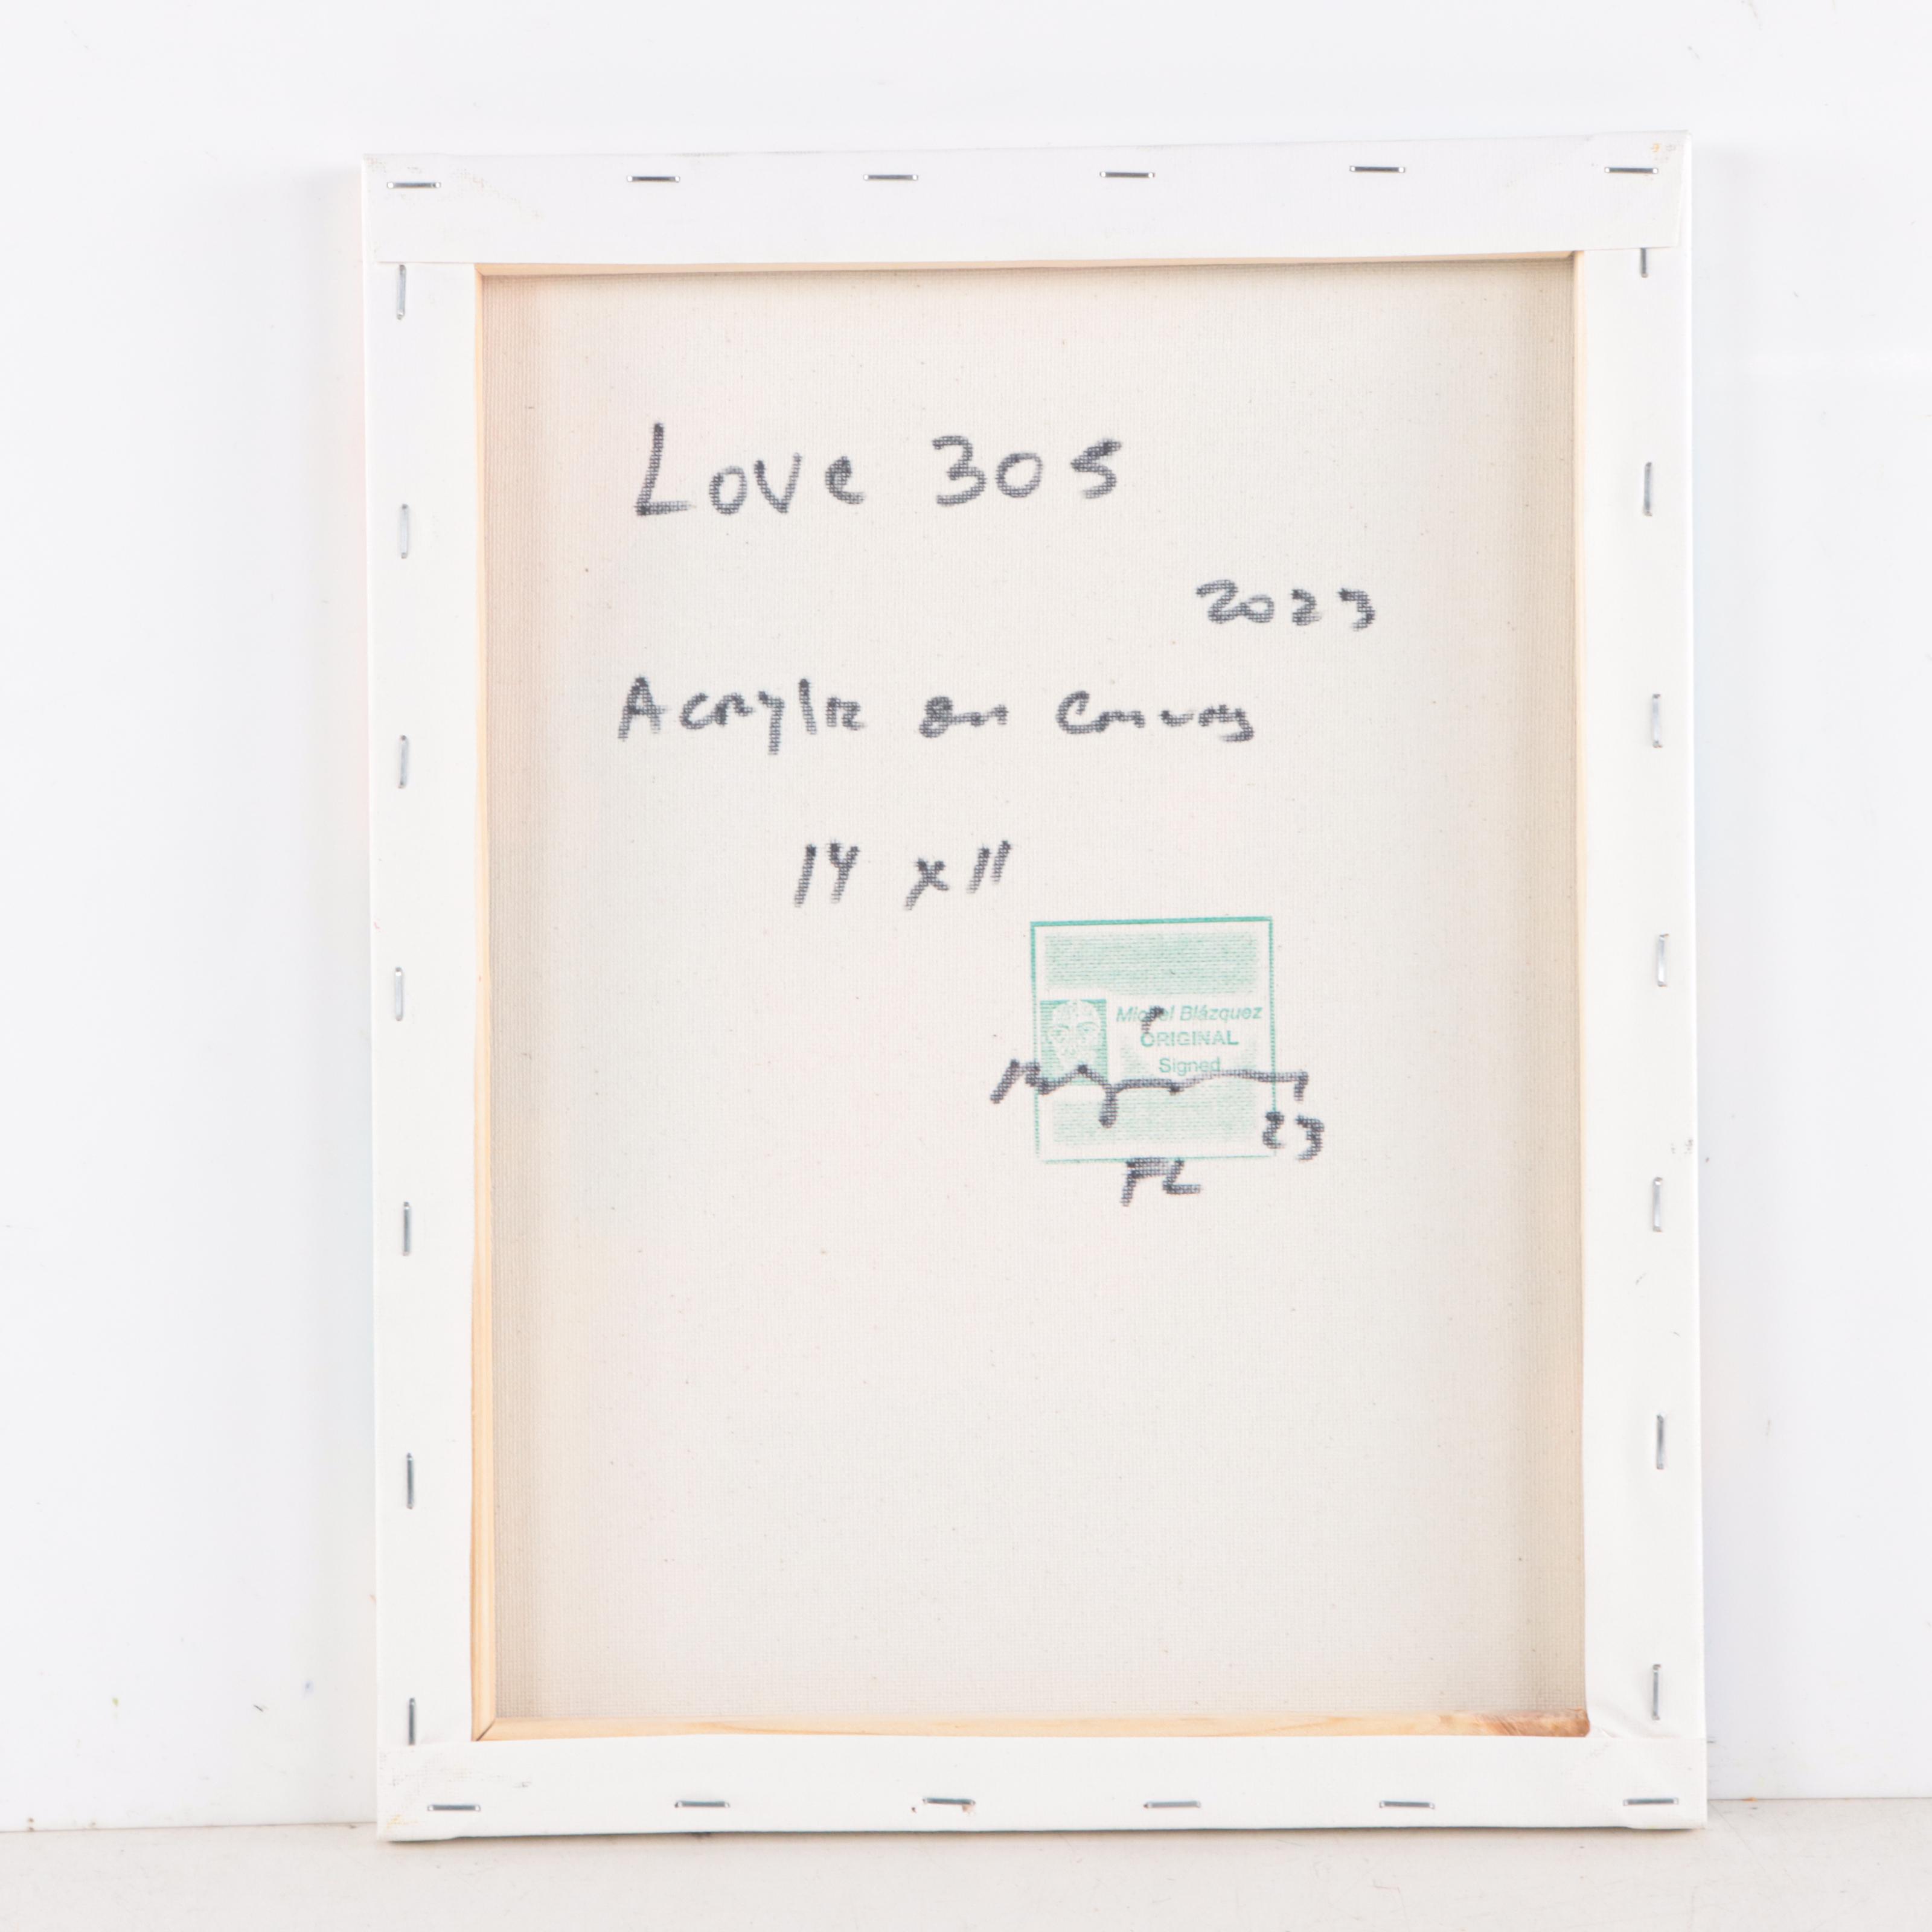 Love 305
2023
Acrylic on Canvas
14 x 11
Blázquez
ORIGINAL
Signed
23
FL